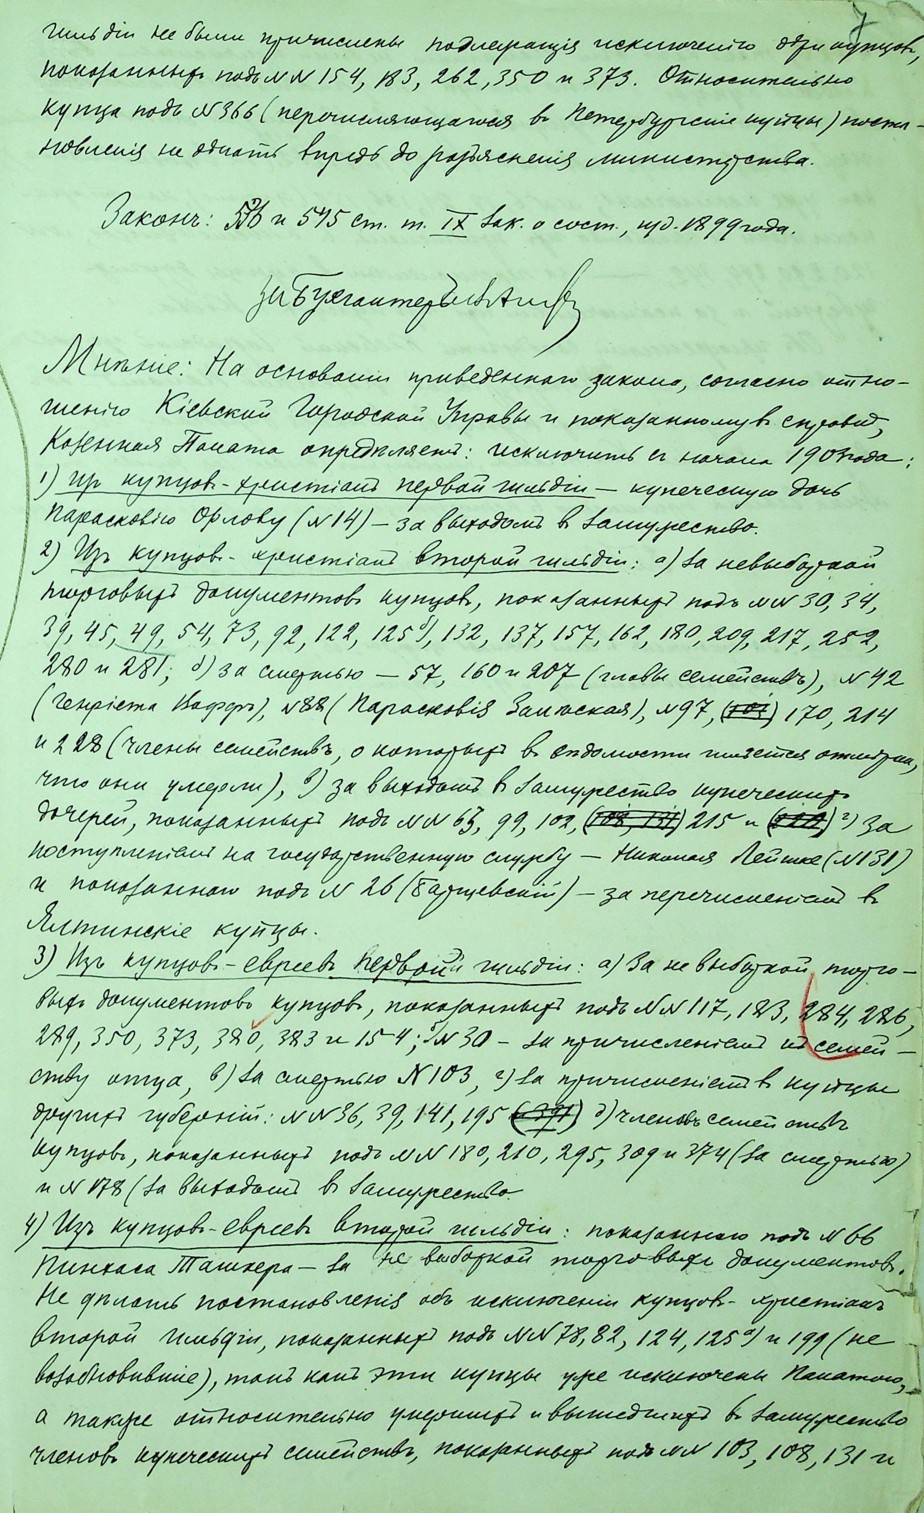 7
гильдіи не были причислены подлежащія исключенію купцовъ,
показанныхъ подъ №№ 154, 183, 262, 350 и 373. Относительно
купца подъ № 366 (перечисляющагося въ Петербургскіе купцы) поста-
новленія не дѣлать впредь до разъясненія министерства.
Законъ: и 545 ст. т. IX Зак. о сост., изд. 1899 года.
За Бухгалтера
Мнѣніе: На основаніи приведеннаго закона, согласно отно-
шенію Кіевской Городской Управы и показанному въ справкѣ,
Казенная Палата опредѣляетъ: исключить съ начала года:
1) изъ купцовъ-христіанъ первой гильдіи – купеческую дочь
Парасковію Орлову (№ 14) – за выходомъ въ замужество.
2) Изъ купцовъ-христіанъ второй гильдіи: а) за невыборкой
торговыхъ документовъ купцовъ, показанныхъ подъ №№ 30, 34,
39, 45, 49, 54, 73, 92, 122, 125 б), 132, 137, 157, 162, 180, 209, 217, 252,
280 и 281; б) за смертью – 57, 160 и 207 (главы семействъ), № 42
(Генріета), № 88 (Парасковія), № 97, (101) 170, 214
и 228 (члены семействъ, о которыхъ въ вѣдомости имѣется отмѣтка,
что они умерли), в) за выходомъ въ замужество купеческихъ
дочерей, показанныхъ подъ №№ 63, 99, 102, (108, 131) 215 и г) за
поступленіемъ на государственную службу – Николая Лейшке (№ 131)
и показаннаго подъ № 26 (Барщевскій) – за перечисленіемъ въ
Ялтинскіе купцы.
3) Изъ купцовъ-евреевъ первой гильдіи: а) За не выборкой торго-
выхъ документовъ купцовъ, показанныхъ подъ №№ 117, 183, 284, 286,
289, 350, 373, 380, 383 и 154; б) № 30 – за причисленіемъ къ семей-
ству отца, в) за смертью № 103, г) за причисленіемъ въ купцы
другихъ губерній: №№ 36, 39, 141, 195 (и 391) д) членовъ семействъ
купцовъ, показанныхъ подъ №№ 180, 210, 295, 309 и 374 (за смертью)
и № 178 (за выходомъ въ замужество.
4) Изъ купцовъ-евреевъ второй гильдіи: показаннаго подъ № 66
Пинхаса Ташкера – за не выборкой торговыхъ документовъ.
Не дѣлать постановленія объ исключеніи купцовъ-христіанъ
второй гильдіи, показанныхъ подъ №№ 78, 82, 124, 125 а) и 199 (не
возобновившіе), такъ какъ эти купцы уже исключены Палатою,
а также относительно умершихъ и вышедшихъ въ замужество
членовъ купеческихъ семействъ, показанныхъ подъ №№ 103, 108, 131 и